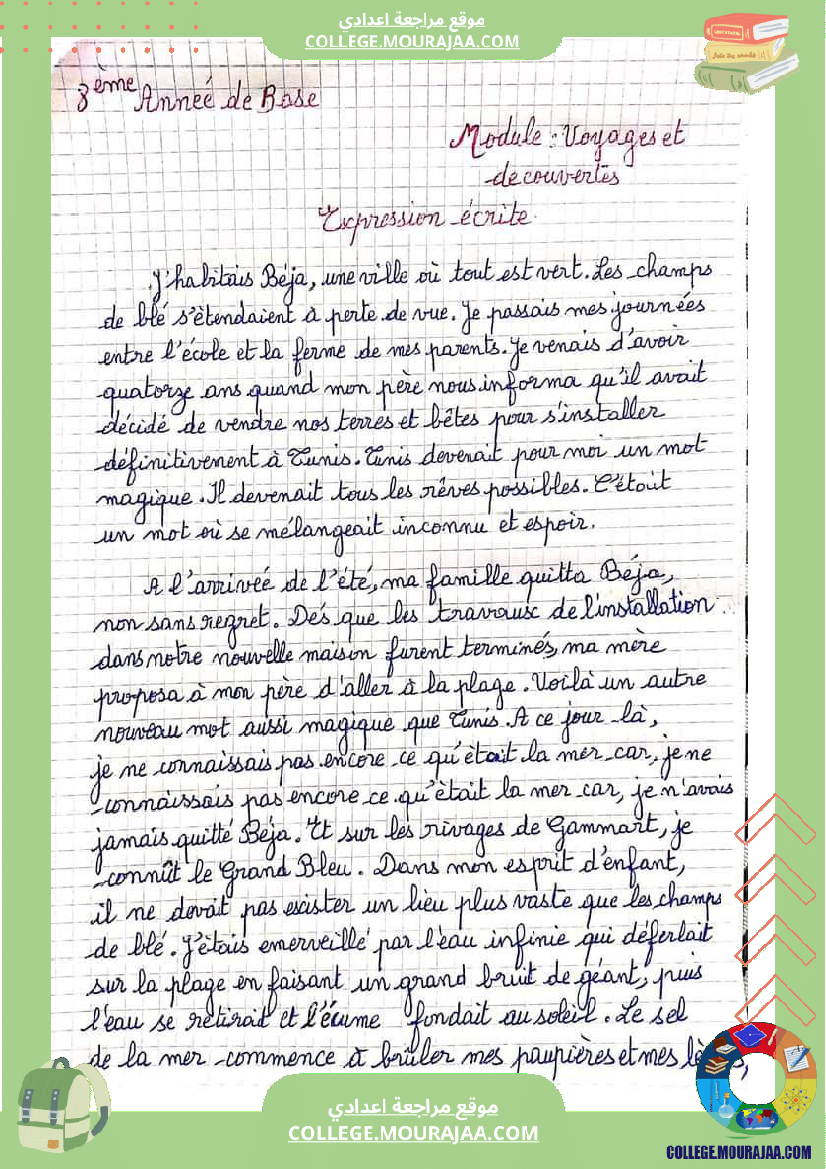 موقع مراجعة اعدادي
COLLEGE.MOURAJAA.COM
8ème Anneé de Base
Module : Voyages et
découvertes
Expression écrite
J'habitais Béja, une ville où tout est vert. Les champs
de blé s'ètendaient à perte de vue. Je passais mes journées
entre l'école et la ferme de mes parents. Je venais d'avoir
quatorze ans quand mon père nous informa qu'il avait
décidé de vendre nos terres et bêtes pour s'installer
définitivement à Tunis. Tunis devenait pour moi un mot
magique. Il devenait tous les rêves possibles. C'était
un mot où se mélangeait inconnu et espoir.
A l'arriveé de l'été, ma famille quitta Béja,
non sans regret. Dés que les travaux de l'installation
dans notre nouvelle maison furent terminés, ma mère
proposa à mon père d'aller à la plage. Voilà un autre
nouveau mot aussi magique que Tunis. A ce jour là,
je ne connaissais pas encore ce qu'était la mer car, je ne
connaissais pas encore ce qu'ètait la mer car, je n'avais
jamais quitté Béja. Et sur les rivages de Gammart, je
connût le Grand Bleu. Dans mon esprit d'enfant,
il ne devait pas exister un lieu plus vaste que les champs
de blé. J'étais emerveillé par l'eau infinie qui déferlait
sur la plage en faisant un grand bruit de géant, puis
l'eau se retirait et l'écume fondait au soleil. Le sel
de la mer commence à brûler mes paupières et mes
موقع مراجعة اعدادي
COLLEGE.MOURAJAA.COM
COLLEGE.MOURAJAA.COM